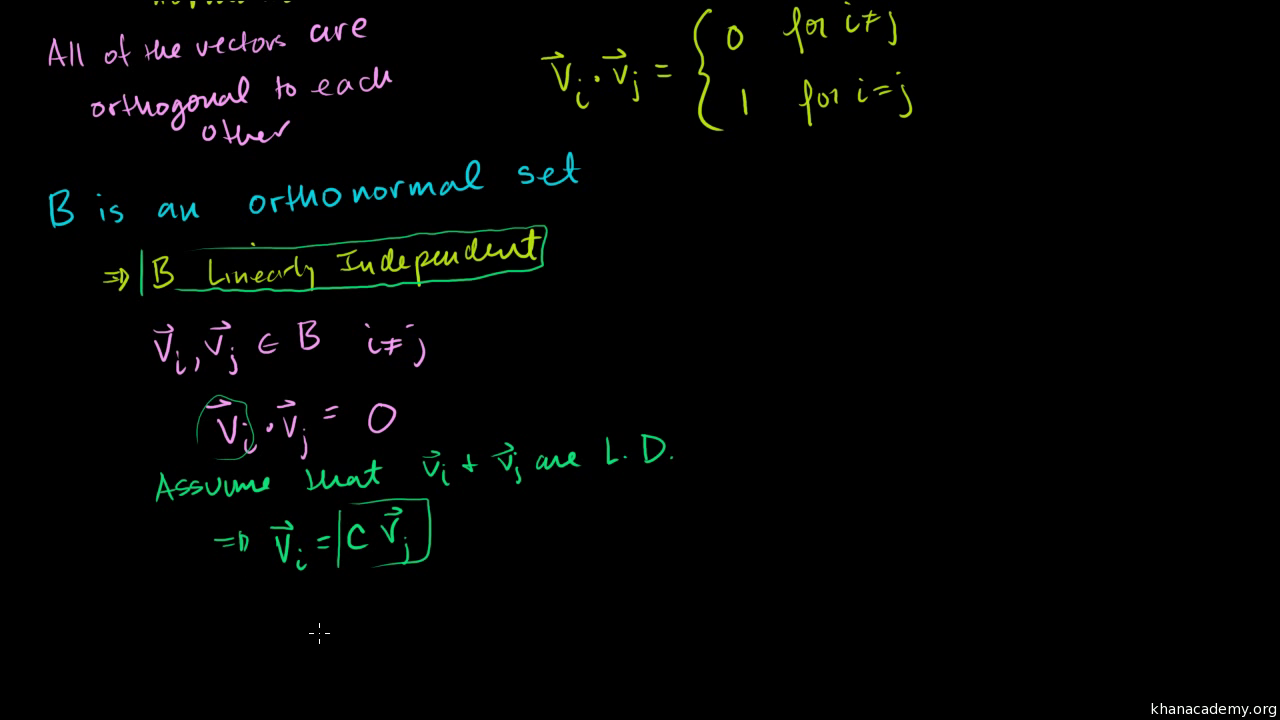 All of the vectors are
orthogonal to each
other
v⃗ᵢ · v⃗ⱼ = { 0 for i≠j
1 for i=j
B is an orthonormal set
⇒ B Linearly Independent
v⃗ᵢ, v⃗ⱼ ∈ B i≠j
v⃗ᵢ · v⃗ⱼ = 0
Assume that v⃗ᵢ + v⃗ⱼ are L.D.
⇒ v⃗ᵢ = c v⃗ⱼ
khanacademy.org